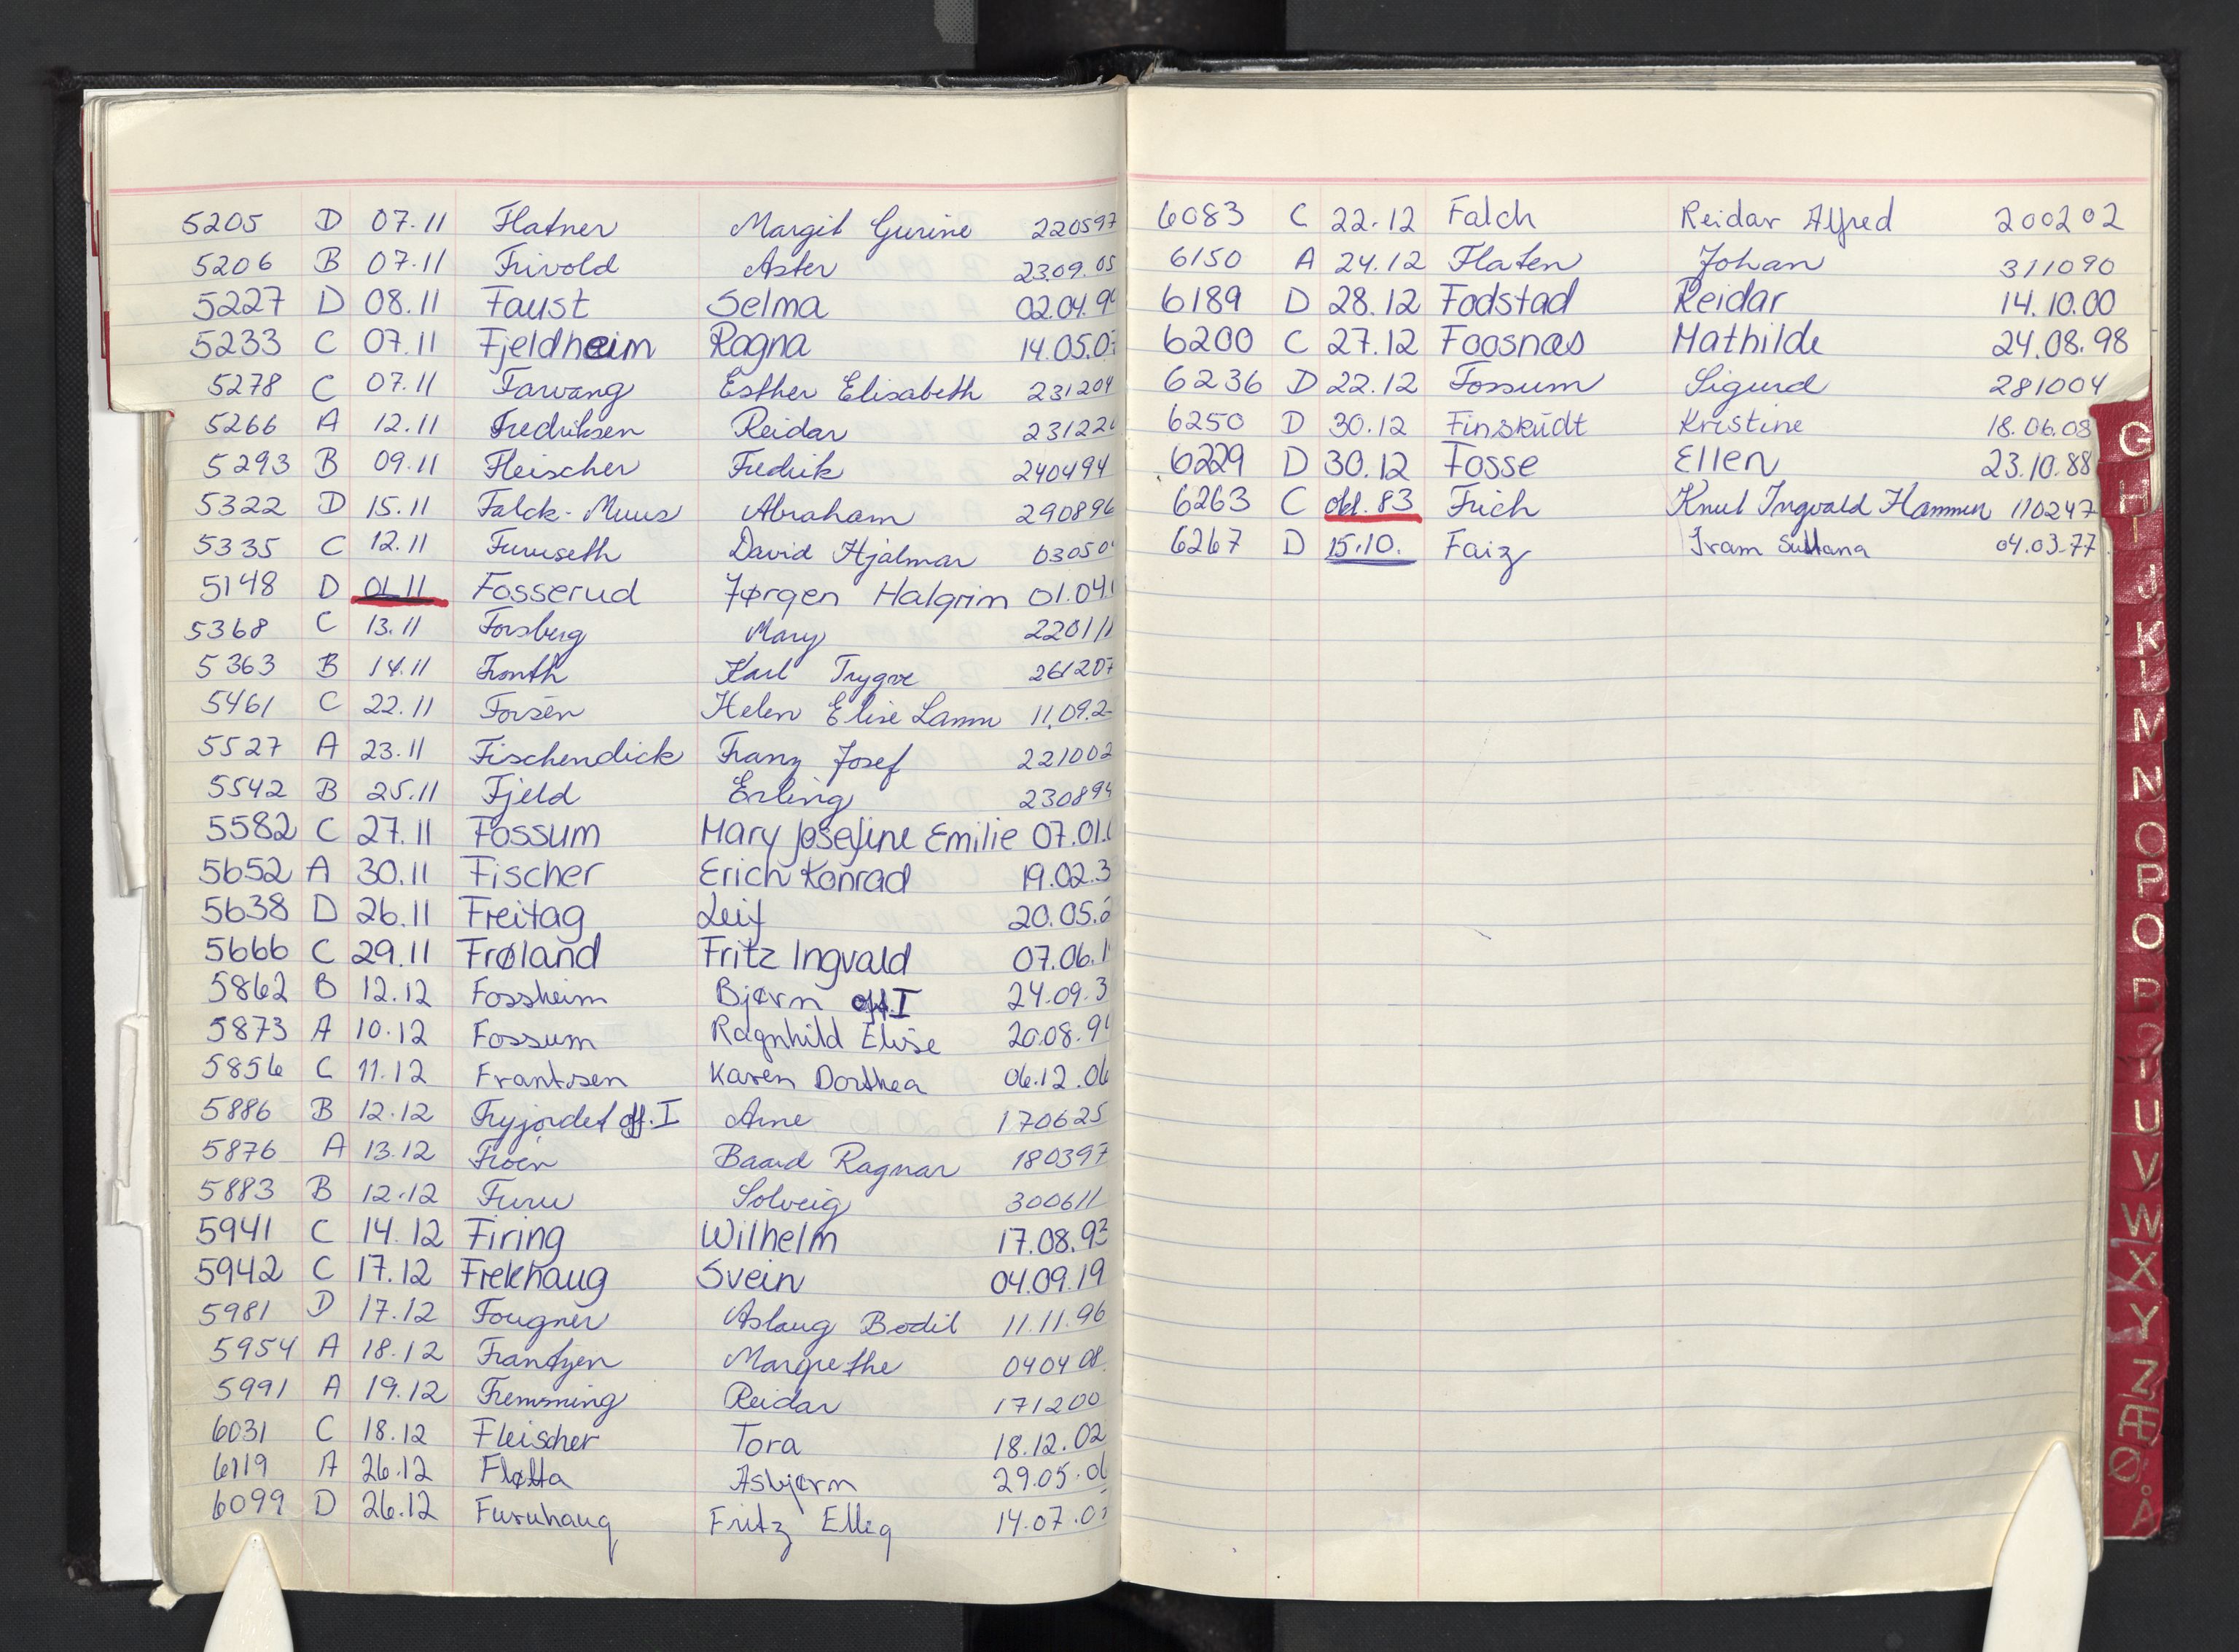 5205 D 07.11 Flatner Margit Gurine 220597
5206 B 07.11 Frivold Aster 2309.05
5227 D 08.11 Faust Selma 02.04.9
5233 C 07.11 Fjeldheim Ragna 14.05.0
5278 C 07.11 Farvang Esther Elisabeth 231204
5266 A 12.11 Fredriksen Reidar 23122
5293 B 09.11 Fleischer Fredrik 240494
5322 D 15.11 Falck-Muus Abraham 290896
5335 C 12.11 Furuseth David Hjalmar 03050
5148 D 01.11 Fosserud Jørgen Halgrim 01.04.
5368 C 13.11 Forsberg Mary 22011
5363 B 14.11 Fronth Karl Trygve 261207
5461 C 22.11 Forsén Helen Elise Lamm 11.09.2
5527 A 23.11 Fischendick Franz Josef 221002
5542 B 25.11 Fjeld Erling 230894
5582 C 27.11 Fossum Mary Josefine Emilie 07.01.
5652 A 30.11 Fischer Erich Konrad 19.02.3
5638 D 26.11 Freitag Leif 20.05.
5666 C 29.11 Frøland Fritz Ingvald 07.06.1
5862 B 12.12 Fossheim Bjørn off.I 24.09.3
5873 A 10.12 Fossum Ragnhild Elise 20.08.9
5856 C 11.12 Frantzen Karen Dorthea 06.12.06
5886 B 12.12 Fryjordet off.I Arne 170625
5876 A 13.12 Froen Baard Ragnar 180397
5883 B 12.12 Furu Solveig 300611
5941 C 14.12 Firing Wilhelm 17.08.93
5942 C 17.12 Frekhaug Svein 04.09.19
5981 D 17.12 Fougner Aslaug Bodil 11.11.96
5954 A 18.12 Frantzen Margrethe 040408.
5991 A 19.12 Fremming Reidar 171200
6031 C 18.12 Fleischer Tora 18.12.02
6119 A 26.12 Fløtta Asbjørn 29.05.06
6099 D 26.12 Furuhaug Fritz 14.07.0
6083 C 22.12 Falch Reidar Alfred 200202
6150 A 24.12 Flaten Johan 311090
6189 D 28.12 Fodstad Reidar 14.10.00
6200 C 27.12 Foosnæs Mathilde 24.08.98
6236 D 22.12 Fossum Sigurd 281004
6250 D 30.12 Finskudt Kristine 18.06.08
6229 D 30.12 Fosse Ellen 23.10.88
6263 C okt. 83 Frich Knut Ingvald Hammer 110247
6267 D 15.10. Faiz Iram Sultana 04.03.77
G
H
I
J
K
L
M
N
O
P
O
P
U
V
W
X
Y
Z
Æ
Ø
Å